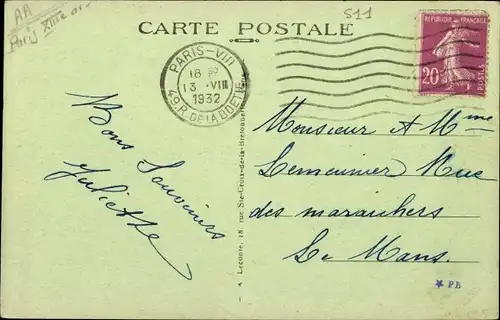 AA
Paris XIIIe ar.
S11
CARTE POSTALE
PARIS-VIII
18
13 · VIII
1932
49, R. DE LA BOETIE
REPUBLIQUE FRANÇAISE
20c
POSTES
Bons Souvenirs
Juliette
Monsieur et Mme
Lemeunier Rue
des maraichers
Le Mans.
A. Leconte, 18, rue Ste-Croix-de-la-Bretonnerie
★ PB